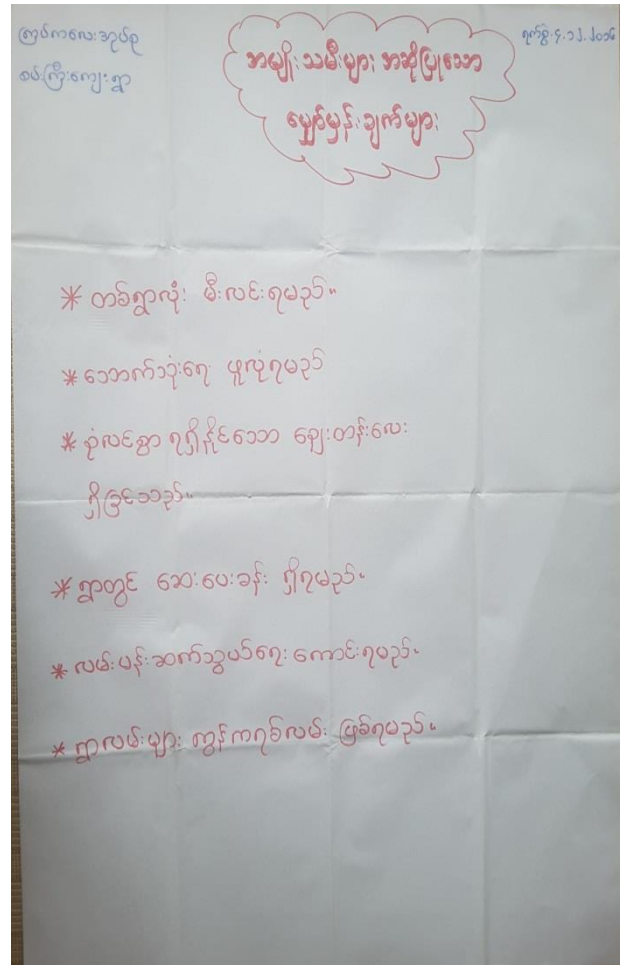 ကြပ်ကလေးအုပ်စု
စမ်းကြီးကျေးရွာ
အမျိုးသမီးများ အဆိုပြုသော
မျှော်မှန်းချက်များ
ရက်စွဲ-၄.၁၂.၂၀၁၆
* တစ်ရွာလုံး မီးလင်းရမည်။
* သောက်သုံးရေ ဖူလုံရမည်
* စုံလင်စွာ ရရှိနိုင်သော ဈေးတန်းလေး
ရှိခြင်သည်။
* ရွာတွင် ဆေးပေးခန်း ရှိရမည်။
* လမ်းပန်းဆက်သွယ်ရေး ကောင်းရမည်။
* ရွာလမ်းများ ကွန်ကရစ်လမ်း ဖြစ်ရမည်။